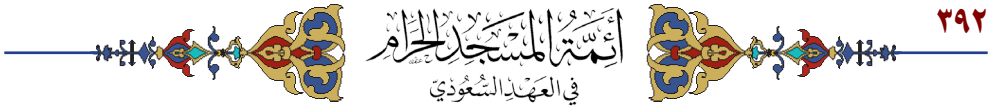 ٣٩٢
أَئِمَّةُ المَسْجِدِ الحَرَامِ
في العَهْدِ السُّعُودِيِّ